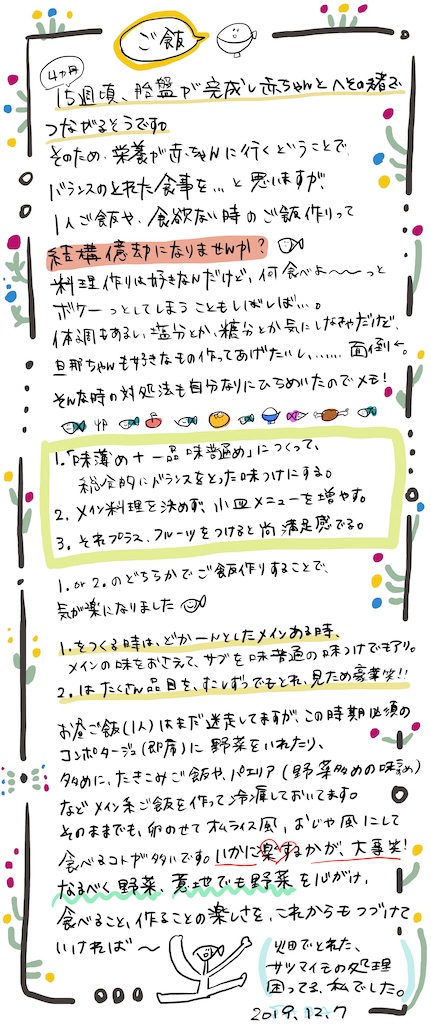 ご飯
4ヵ月
15週頃、胎盤が完成し赤ちゃんとへその緒で
つながるそうです。
そのため、栄養が赤ちゃんに行くということで、
バランスのとれた食事を…と思いますが、
1人ご飯や、食欲ない時のご飯作りって
結構億劫になりませんか?
料理作りは好きなんだけど、何食べよ〜〜っと
ボケーっとしてしまうこともしばしば…。
体調もあるし、塩分とか、糖分とか気にしなきゃだけど、
旦那ちゃんも好きなもの作ってあげたいし、……面倒←。
そんな時の対処法も自分なりにひらめいたのでメモ!
1.「味薄め+一品味普通め」につくって、
総合的にバランスをとった味つけにする。
2. メイン料理を決めず、小皿メニューを増やす。
3. それプラス、フルーツをつけると尚満足感でる。
1. or 2. のどちらかでご飯作りすることで、
気が楽になりました
1. をつくる時は、どかーんとしたメインある時、
メインの味をおさえて、サブを味普通の味つけでもアリ。
2. はたくさん品目を、すこしずつでもとれ、見ため豪華笑!!
お昼ご飯(1人)はまだ迷走してますが、この時期必須の
コンポタージュ(即席)に野菜をいれたり、
多めに、たきこみご飯や、パエリア(野菜多めの味薄め)
などメイン系ご飯を作って冷凍しておいてます。
そのままでも、卵のせてオムライス風、おじや風にして
食べるコトが多いです。いかに楽するかが、大事笑!
なるべく野菜、意地でも野菜を心がけ、
食べること、作ることの楽しさを、これからもつづけて
いければ〜
畑でとれた、
サツマイモの処理
困ってる、私でした。
2019.12.7